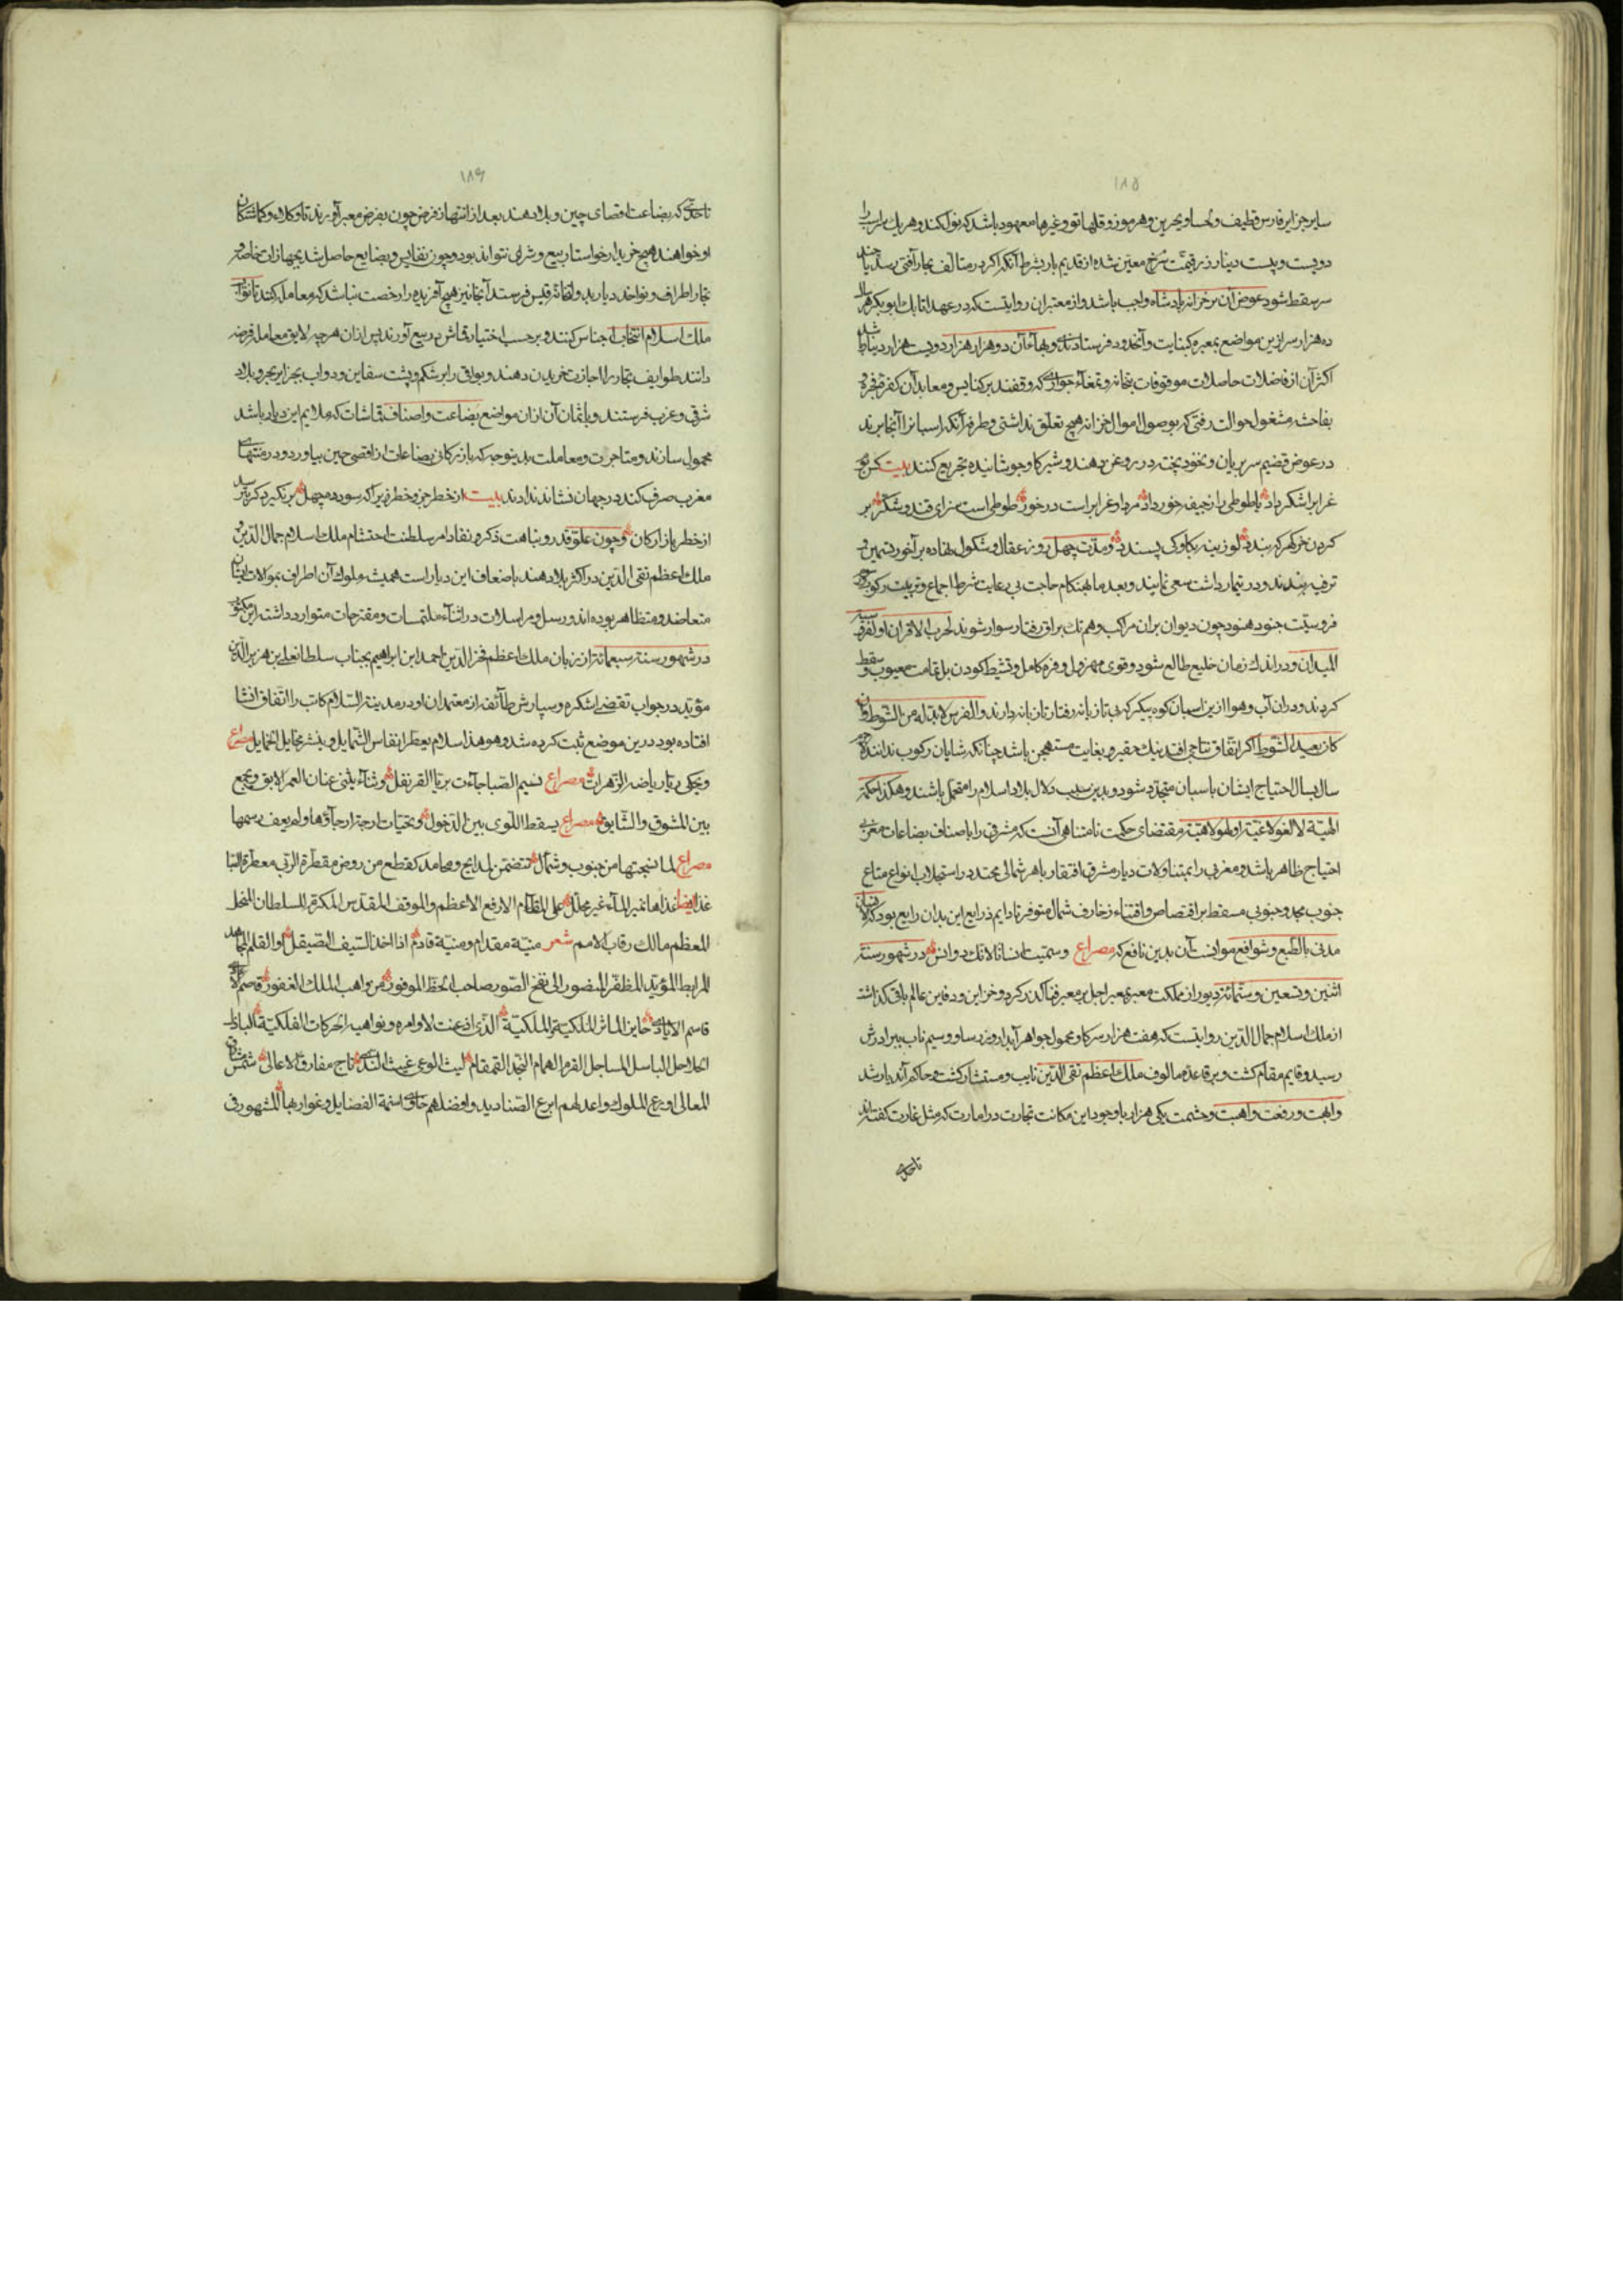 ۱۸۵
سایر جزایر فارس قطیف و لحسا و بحرین و هرموز و قلهاتو و غیرها معهود باشد که نوا کنند و هر یک سر اسب را
دویست و بیست دینار زر قیمت سرخ معین شده از قدیم باز بشرط آنکه اگر در متالف بحار آفتی رسد یا چند
سر سقط شود عوض آن بر خزانه پادشاه واجب باشد و از معتبران روایتست که در عهد اتابک ابوبکر هر سال
ده هزار سر ازین مواضع بمعبر و کنبایت و آنحدود فرستادندی و بهاء آن دو هزار هزار دویست هزار دینار شدی
اکثر آن از فاضلات حاصلات موقوفات بتخانه و تمغاء جواری که وقفند بر کنایس و معابد آن کفره فجره
بفاحشه مشغول حوالت رفتی که بوصول اموال خزانه هیچ تعلق نداشتی و طرفه آنکه اسبانرا آنجا برند
در عوض قضیم سر بریان و نخود پخته در روغن دهند و شیر گاو جوشانیده تجریع کنند بیت کس بو
غرابرا شکر داد یا طوطی را زجیف خورد داد مردار غرابراست درخور طوطی است سزای قند و شکر بر
کردن خر گهر که بندد لوزینه بگاو کی پسندد و مدت چهل روز بی عقال و شکول بنهاده بر آخور تسمین و
ترفیه بندند و در تیمار داشت سعی نمایند و بعد ما بهنگام حاجت بی رعایت شرط اجماع و تربیت رکوب
فروسیت جنود هنود چون دیوان بران مراکب وهم تک براق رفتار سوار شوند لحرب الاقران او لفرقه سینه
المیدان و در اندک زمان خلیع طالع شود و قوی مهزول و فره کامل و نشیط کودن بل بتمامت معیوب و سقط
کردند و دران آب و هوا ازین اسبان کوه پیکر که بی تازیانه رفتار تازیانه دارند و الفرس لابد له من الشوط و ان
کان بعید الشوط اگر اتفاق نتاجی افتد نیک حقیر و بغایت مستهجن باشد چنانکه شایان رکوب ندانند
سال بسال احتیاج ایشان باسبان متجدد شود و بدین سبب دلال بلاد اسلام را متحمل باشند و هکذا حکمة
الهیّة لا لغو لاغیة او لهو لاهیة مقتضای حکمت نامتناهی آنست که مشرقی را باصناف بضاعات مغربی
احتیاج ظاهر باشد و مغربی را بمتناولات دیار مشرق افتقار باهر شمالی مجتد در استجلاب انواع متاع
جنوب مجد و جنوبی مسقط بر اقتصاص و اقتناء زخارف شمال متوفر تا دایم ذرایع این بدان رایع بود که الانسان
مدنی بالطبع و شوافع موانست آن بدین نافع که مصراع وسمیت انسانا لانک ذوانس در شهور سنه
اثنین و تسعین و ستمائة دیور از مملکت معبر بمعبر اجل بر معبر فنا گذر کرد و خزاین و دفاین عالم باقی گذاشت
از ملک اسلام جمال الدین روایتست که هفت هزار سر گاو محمول جواهر آبدار و زر و ساو و سیم ناب ببرادرش
رسید و قایم مقام گشت و بر قاعده مالوف ملک اعظم تقی الدین نایب و مستشار گشت و حاکم آن دیار شد
و ابهت و رفعت و اهبت و حشمت یکی هزار و با وجود این مکانت تجارت در امارت که مثل غارت گفته‌اند
تا حدی
۱۸۶
تا حدی که بضاعت اقصای چین و بلاد هند بعد از انتهاز فرص چون بفرض معبر آورند تا وکلاء و گماشتگان
او خواهند هیچ خریدار خواستار بیع و شری نتواند بود و چون نفایس و بضایع حاصل شد بجهازات خاصه و
تجار اطراف و نواخذ دیار بدولتخانه قیس فرستد آنجا نیز هیچ آفریده را رخصت نباشد که معامله کنند تا نواب
ملک اسلام انتخاب اجناس کنند و بر حسب اختیار قماش بر بیع آورند پس ازان هرچه لایق معامله فرضه
دانند طوایف تجار را اجازت خریدن دهند و بواقی را بر شکم و پشت سفاین و دواب بجزایر بحر و بلاد
شرقی و غرب فرستند و باثمان آن ازان مواضع بضاعت و اصناف قماشات که ملایم این دیار باشد
محمول سازند و متاجرت و معاملت بدینوجه که بازرگانی بضاعات از اقصی چین بیاورد و در منتهای
مغرب صرف کند در جهان نشانه ندادند بیت از خطر جز و خطر زیراکه سود ده چهل بر نگیرد گر بترسد
از خطر بازارگان و چون علو قدر و نباهت ذکر و نفاذ امر سلطنت احتشام ملک اسلام جمال الدین و
ملک اعظم تقی الدین در اکثر بلاد هند باضعاف این دیارست همیشه ملوک آن اطراف بموالات ایشان
متعاضد و متظاهر بوده‌اند و رسل و مراسلات در اثناء ملتمسات و مقترحات متوارد داشته این مکتوب
در شهور سنه سبعمائة از زبان ملک اعظم فخر الدین احمد ابن ابراهیم بجناب سلطان علی بن هزبر الدین
موید در جواب تقضی اشکره و سپارش طائفه از معتمدان او در مدینة السلام کاتب را اتفاق انشا
افتاده بود درین موضع ثبت کرده شد و هو هذا سلام یعطر انفاس الشمایل و ینشر مخایل الخمایل مصراع
و یحکی ریا ریاضه الزهرات مصراع نسیم الصبا جاءت بریا القرنفل و ثناء یثنی عنان العمر الابق و یجمع
بین المشوق و الشایق مصراع بسقط اللوی بین الدخول و تحیات ارجة ارجاؤها و لم یعف رسمها
مصراع لما نسجتها من جنوب و شمأل تتضمن لمدایح و محامد کقطع من روض مقطرة الربی معطرة النبا
غذا ایضا غذاها نمیر الماء غیر محلل علی المقام الارفع الاعظم و الموقف المقدس المکرم للسلطان المبجل
المعظم مالک رقاب الامم شعر منیّة مقدام و منیّة قادم اذا اخذ السیف الصیقل او القلم المجاهد
المرابط المؤید المظفر المنصور الی نفخ الصور صاحب الحظ الموفور من مواهب الملک الغفور قاصم
قاسم الایادی حاین المآثر الملکیة و الملکیة الذی اذعنت لاوامره و نواهیه الحرکات الفلکیة الباذل
الحلاحل الباسل المساجل القرم الهمام النجد القمقام لیث الوغی غیث الندی تاج مفارق الاعالی شمس مشارق
المعالی اورع الملوک و اعدلهم ابرع الصنادید و افضلهم حاوی اسنمة الفضایل و غواربها المشهور فی